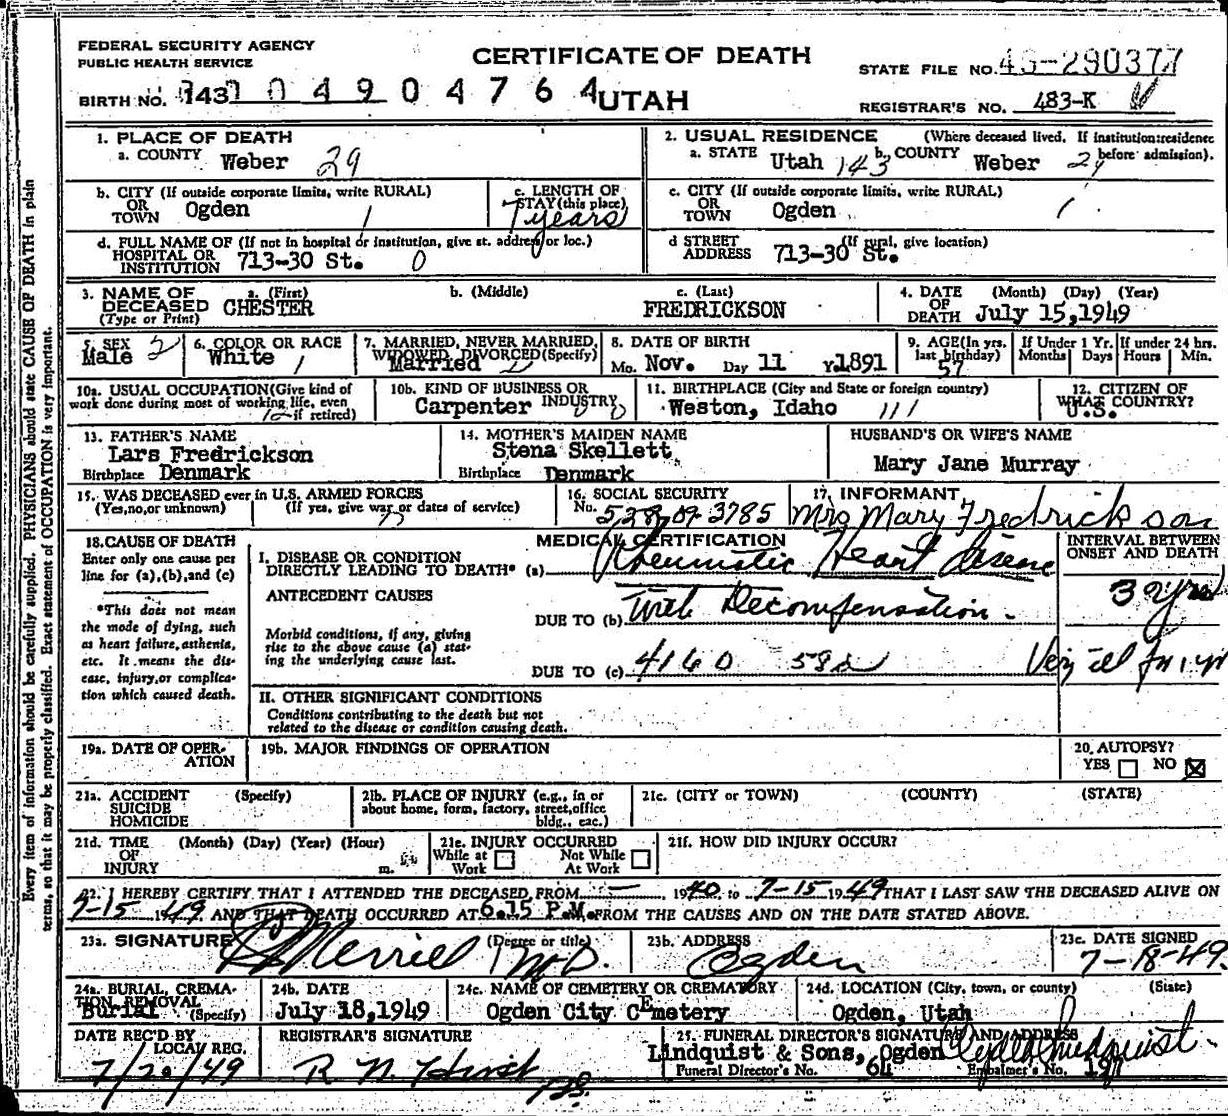 FEDERAL SECURITY AGENCY
PUBLIC HEALTH SERVICE
CERTIFICATE OF DEATH
STATE FILE NO.
BIRTH NO. 143 0 4 9 0 4 7 6 4 UTAH
REGISTRAR'S NO. 483-K
1. PLACE OF DEATH
a. COUNTY Weber 29
2. USUAL RESIDENCE (Where deceased lived. If institution:residence before admission).
a. STATE Utah 143 b. COUNTY Weber
b. CITY (If outside corporate limits, write RURAL)
OR TOWN Ogden
c. LENGTH OF STAY (this place)
7 years
c. CITY (If outside corporate limits, write RURAL)
OR TOWN Ogden
d. FULL NAME OF (If not in hospital or institution, give st. address or loc.)
HOSPITAL OR INSTITUTION 713-30 St. 0
d STREET ADDRESS (If rural, give location)
713-30 St.
3. NAME OF DECEASED (Type or Print)
a. (First) CHESTER
b. (Middle)
c. (Last) FREDRICKSON
4. DATE OF DEATH (Month) (Day) (Year)
July 15,1949
5. SEX
Male
6. COLOR OR RACE
White
7. MARRIED, NEVER MARRIED, WIDOWED, DIVORCED (Specify)
Married
8. DATE OF BIRTH
Mo. Nov. Day 11 Y.1891
9. AGE(In yrs. last birthday)
57
If Under 1 Yr. Months Days
If under 24 hrs. Hours Min.
10a. USUAL OCCUPATION(Give kind of work done during most of working life, even if retired)
10b. KIND OF BUSINESS OR INDUSTRY
Carpenter
11. BIRTHPLACE (City and State or foreign country)
Weston, Idaho
12. CITIZEN OF WHAT COUNTRY?
U.S.
13. FATHER'S NAME
Lars Fredrickson
Birthplace Denmark
14. MOTHER'S MAIDEN NAME
Stena Skellett
Birthplace Denmark
HUSBAND'S OR WIFE'S NAME
Mary Jane Murray
15. WAS DECEASED ever in U.S. ARMED FORCES
(Yes,no,or unknown) (If yes, give war or dates of service)
16. SOCIAL SECURITY
No. 528 09 3785
17. INFORMANT
Mrs Mary Fredrickson
18.CAUSE OF DEATH
Enter only one cause per line for (a),(b),and (c)
*This does not mean the mode of dying, such as heart failure,asthenia, etc. It means the disease, injury,or complication which caused death.
MEDICAL CERTIFICATION
I. DISEASE OR CONDITION DIRECTLY LEADING TO DEATH* (a) Rheumatic Heart disease
ANTECEDENT CAUSES
DUE TO (b) With Decompensation
Morbid conditions, if any, giving rise to the above cause (a) stating the underlying cause last.
DUE TO (c) 4160
INTERVAL BETWEEN ONSET AND DEATH
3 yrs
Very ill for 1 yr
II. OTHER SIGNIFICANT CONDITIONS
Conditions contributing to the death but not related to the disease or condition causing death.
19a. DATE OF OPERATION
19b. MAJOR FINDINGS OF OPERATION
20. AUTOPSY?
YES NO
21a. ACCIDENT SUICIDE HOMICIDE (Specify)
21b. PLACE OF INJURY (e.g., in or about home, form, factory, street,office bldg., etc.)
21c. (CITY or TOWN) (COUNTY) (STATE)
21d. TIME OF INJURY (Month) (Day) (Year) (Hour) m.
21e. INJURY OCCURRED
While at Work Not While At Work
21f. HOW DID INJURY OCCUR?
22. I HEREBY CERTIFY THAT I ATTENDED THE DECEASED FROM — 1940, to 7-15 1949 THAT I LAST SAW THE DECEASED ALIVE ON
7-15 1949 AND THAT DEATH OCCURRED AT 6.15 P.M. FROM THE CAUSES AND ON THE DATE STATED ABOVE.
23a. SIGNATURE Merrill (Degree or title) M.D.
23b. ADDRESS
Ogden
23c. DATE SIGNED
7-18-49
24a. BURIAL, CREMATION, REMOVAL (Specify)
Burial
24b. DATE
July 18,1949
24c. NAME OF CEMETERY OR CREMATORY
Ogden City CEmetery
24d. LOCATION (City, town, or county) (State)
Ogden, Utah
DATE REC'D BY LOCAL REG.
7/20/49
REGISTRAR'S SIGNATURE
R N Hirst
25. FUNERAL DIRECTOR'S SIGNATURE AND ADDRESS
Lindquist & Sons, Ogden Lindquist
Funeral Director's No. 64 Embalmer's No.
Every item of information should be carefully supplied. PHYSICIANS should state CAUSE OF DEATH in plain
terms, so that it may be properly classified. Exact statement of OCCUPATION is very important.